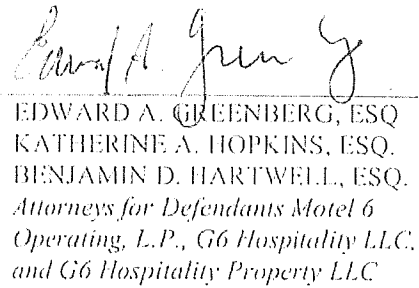 Edward A. Green
EDWARD A. GREENBERG, ESQ
KATHERINE A. HOPKINS, ESQ.
BENJAMIN D. HARTWELL, ESQ.
Attorneys for Defendants Motel 6
Operating, L.P., G6 Hospitality LLC,
and G6 Hospitality Property LLC